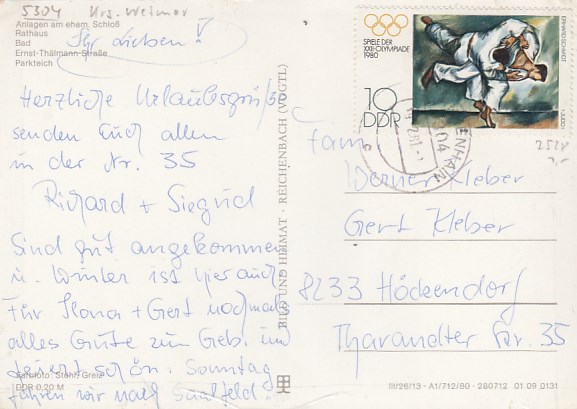 5304 Krs. Weimar
Anlagen am ehem. Schloß
Rathaus
Bad
Ernst-Thälmann-Straße
Parkteich
Ihr Lieben!
Herzliche Urlaubsgrüße
senden Euch allen
in der Nr. 35
Richard + Siegrid
Sind gut angekommen
u. Winter ist hier auch
Für Ilona + Gert nochmals
alles Gute zum Geb. und
feiert schön. Sonntag
fahren wir nach Saalfeld!
Farbfoto: Stöhr, Greiz
DDR 0,20 M
BILD UND HEIMAT · REICHENBACH (VOGTL)
SPIELE DER
XXII. OLYMPIADE
1980
10
DDR
JUDO
ERHARD SCHMIDT
ENHAIN
2528
Fam.
Werner Kleber
Gert Kleber
8233 Höckendorf
Tharandter Str. 35
III/26/13 · A1/712/80 · 280712 01 09 0131